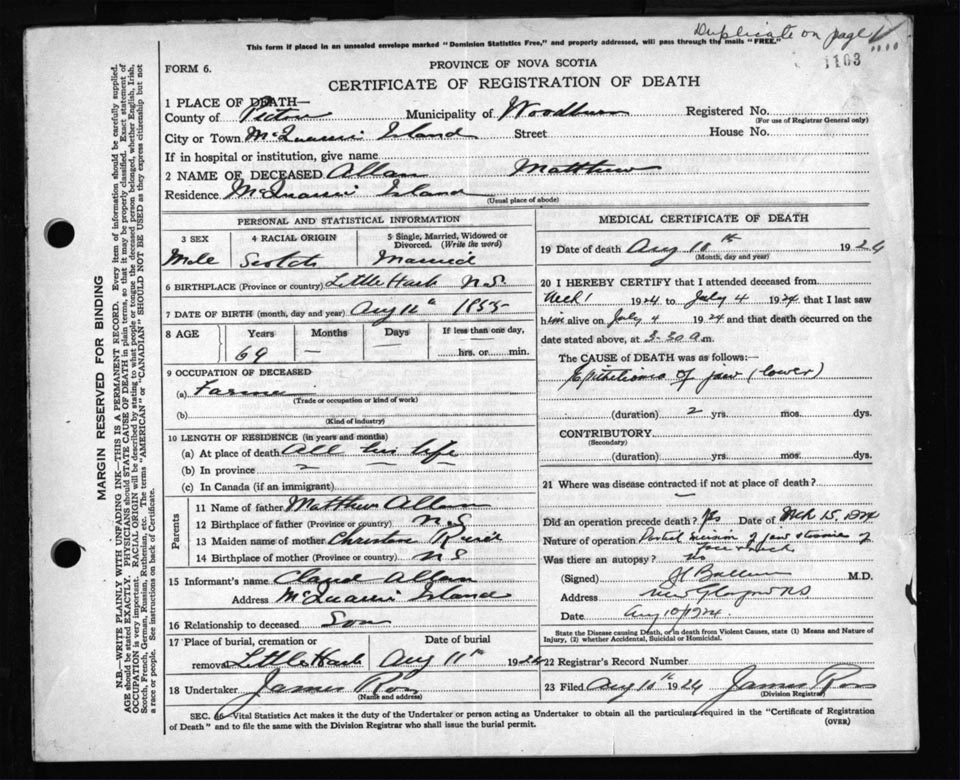 Duplicate on page
This form if placed in an unsealed envelope marked "Dominion Statistics Free," and properly addressed, will pass through the mails "FREE."
1103
FORM 6.
PROVINCE OF NOVA SCOTIA
CERTIFICATE OF REGISTRATION OF DEATH
1 PLACE OF DEATH—
County of Pictou Municipality of Woodburn Registered No.
(For use of Registrar General only)
City or Town McQuarrie Island Street House No.
If in hospital or institution, give name
2 NAME OF DECEASED Allan Matthew
Residence McQuarrie Island
(Usual place of abode)
PERSONAL AND STATISTICAL INFORMATION
3 SEX 4 RACIAL ORIGIN 5 Single, Married, Widowed or Divorced. (Write the word)
Male Scotch Married
6 BIRTHPLACE (Province or country) Little Harb N.S.
7 DATE OF BIRTH (month, day and year) Aug 11th 1855
8 AGE Years Months Days If less than one day,
69 — hrs. or min.
9 OCCUPATION OF DECEASED
(a) Farmer
(Trade or occupation or kind of work)
(b)
(Kind of industry)
10 LENGTH OF RESIDENCE (in years and months)
(a) At place of death All his life
(b) In province
(c) In Canada (if an immigrant)
Parents
11 Name of father Matthew Allan
12 Birthplace of father (Province or country) N.S
13 Maiden name of mother Christina
14 Birthplace of mother (Province or country) N S
15 Informant's name Claud Allan
Address McQuarrie Island
16 Relationship to deceased Son
17 Place of burial, cremation or removal Little Harb Date of burial Aug 11th 1924
18 Undertaker James Ross
(Name and address)
MEDICAL CERTIFICATE OF DEATH
19 Date of death Aug 10th 1924
(Month, day and year)
20 I HEREBY CERTIFY that I attended deceased from
Mch 1 1924 to July 4 1924 that I last saw
him alive on July 4 1924 and that death occurred on
date stated above, at 3.30 a.m.
The CAUSE OF DEATH was as follows:—
Epithelioma of jaw (lower)
(duration) 2 yrs. mos. dys.
CONTRIBUTORY
(Secondary)
(duration) yrs. mos. dys.
21 Where was disease contracted if not at place of death?
—
Did an operation precede death? Yes Date of Mch 15, 1924
Nature of operation Partial of jaw of
face & neck
Was there an autopsy? no
(Signed) M.D.
Address New Glasgow N S
Date Aug 10/1924
State the Disease causing Death, or in death from Violent Causes, state (1) Means and Nature of Injury, (2) whether Accidental, Suicidal or Homicidal.
22 Registrar's Record Number
23 Filed Aug 10th 1924 James Ross
(Division Registrar)
SEC. 46—Vital Statistics Act makes it the duty of the Undertaker or person acting as Undertaker to obtain all the particulars required in the "Certificate of Registration
of Death" and to file the same with the Division Registrar who shall issue the burial permit. (OVER)
MARGIN RESERVED FOR BINDING
N.B.—WRITE PLAINLY WITH UNFADING INK—THIS IS A PERMANENT RECORD. Every item of information should be carefully supplied.
AGE should be stated EXACTLY. PHYSICIANS should STATE CAUSE OF DEATH in plain terms, so that it may be properly classified. Exact statement of
OCCUPATION is very important. RACIAL ORIGIN will be described by stating to what people or tongue the deceased person belonged, whether English, Irish,
Scotch, French, German, Russian, Ruthenian, etc. The terms "AMERICAN" or "CANADIAN" SHOULD NOT BE USED as they express citizenship but not
a race or people. See instructions on back of Certificate.